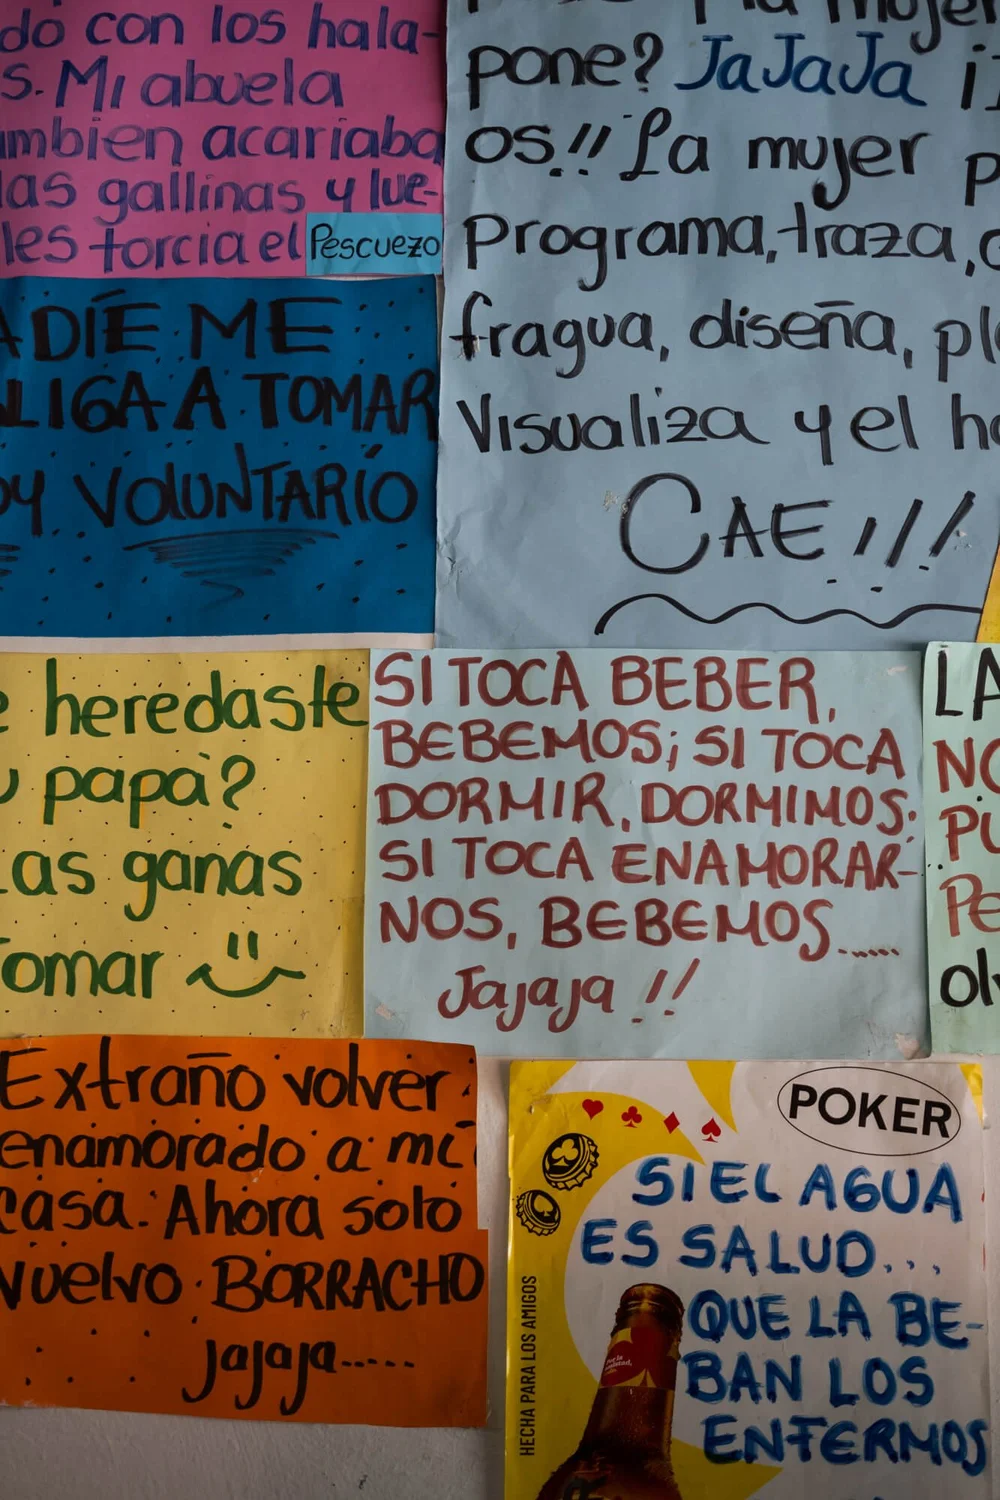 do con los hala-
s. Mi abuela
ambien acariaba
las gallinas y lue-
les torcia el Pescuezo
ADÍE ME
LIGA A TOMAR
OY VOLUNTARÍO
la mujer
pone? JaJaJa
os!! La mujer p
Programa, traza,
fragua, diseña, pl
Visualiza y el ho
CAE!!!
e heredaste
u papá?
Las ganas
Tomar
SI TOCA BEBER,
BEBEMOS; SI TOCA
DORMIR, DORMIMOS;
SI TOCA ENAMORAR-
NOS, BEBEMOS......
Jajaja!!
LA
NO
PU
PE
olv
Extraño volver
enamorado a mi
casa. Ahora solo
vuelvo BORRACHO
jajaja.....
POKER
SI EL AGUA
ES SALUD...
QUE LA BE-
BAN LOS
ENFERMOS
HECHA PARA LOS AMIGOS